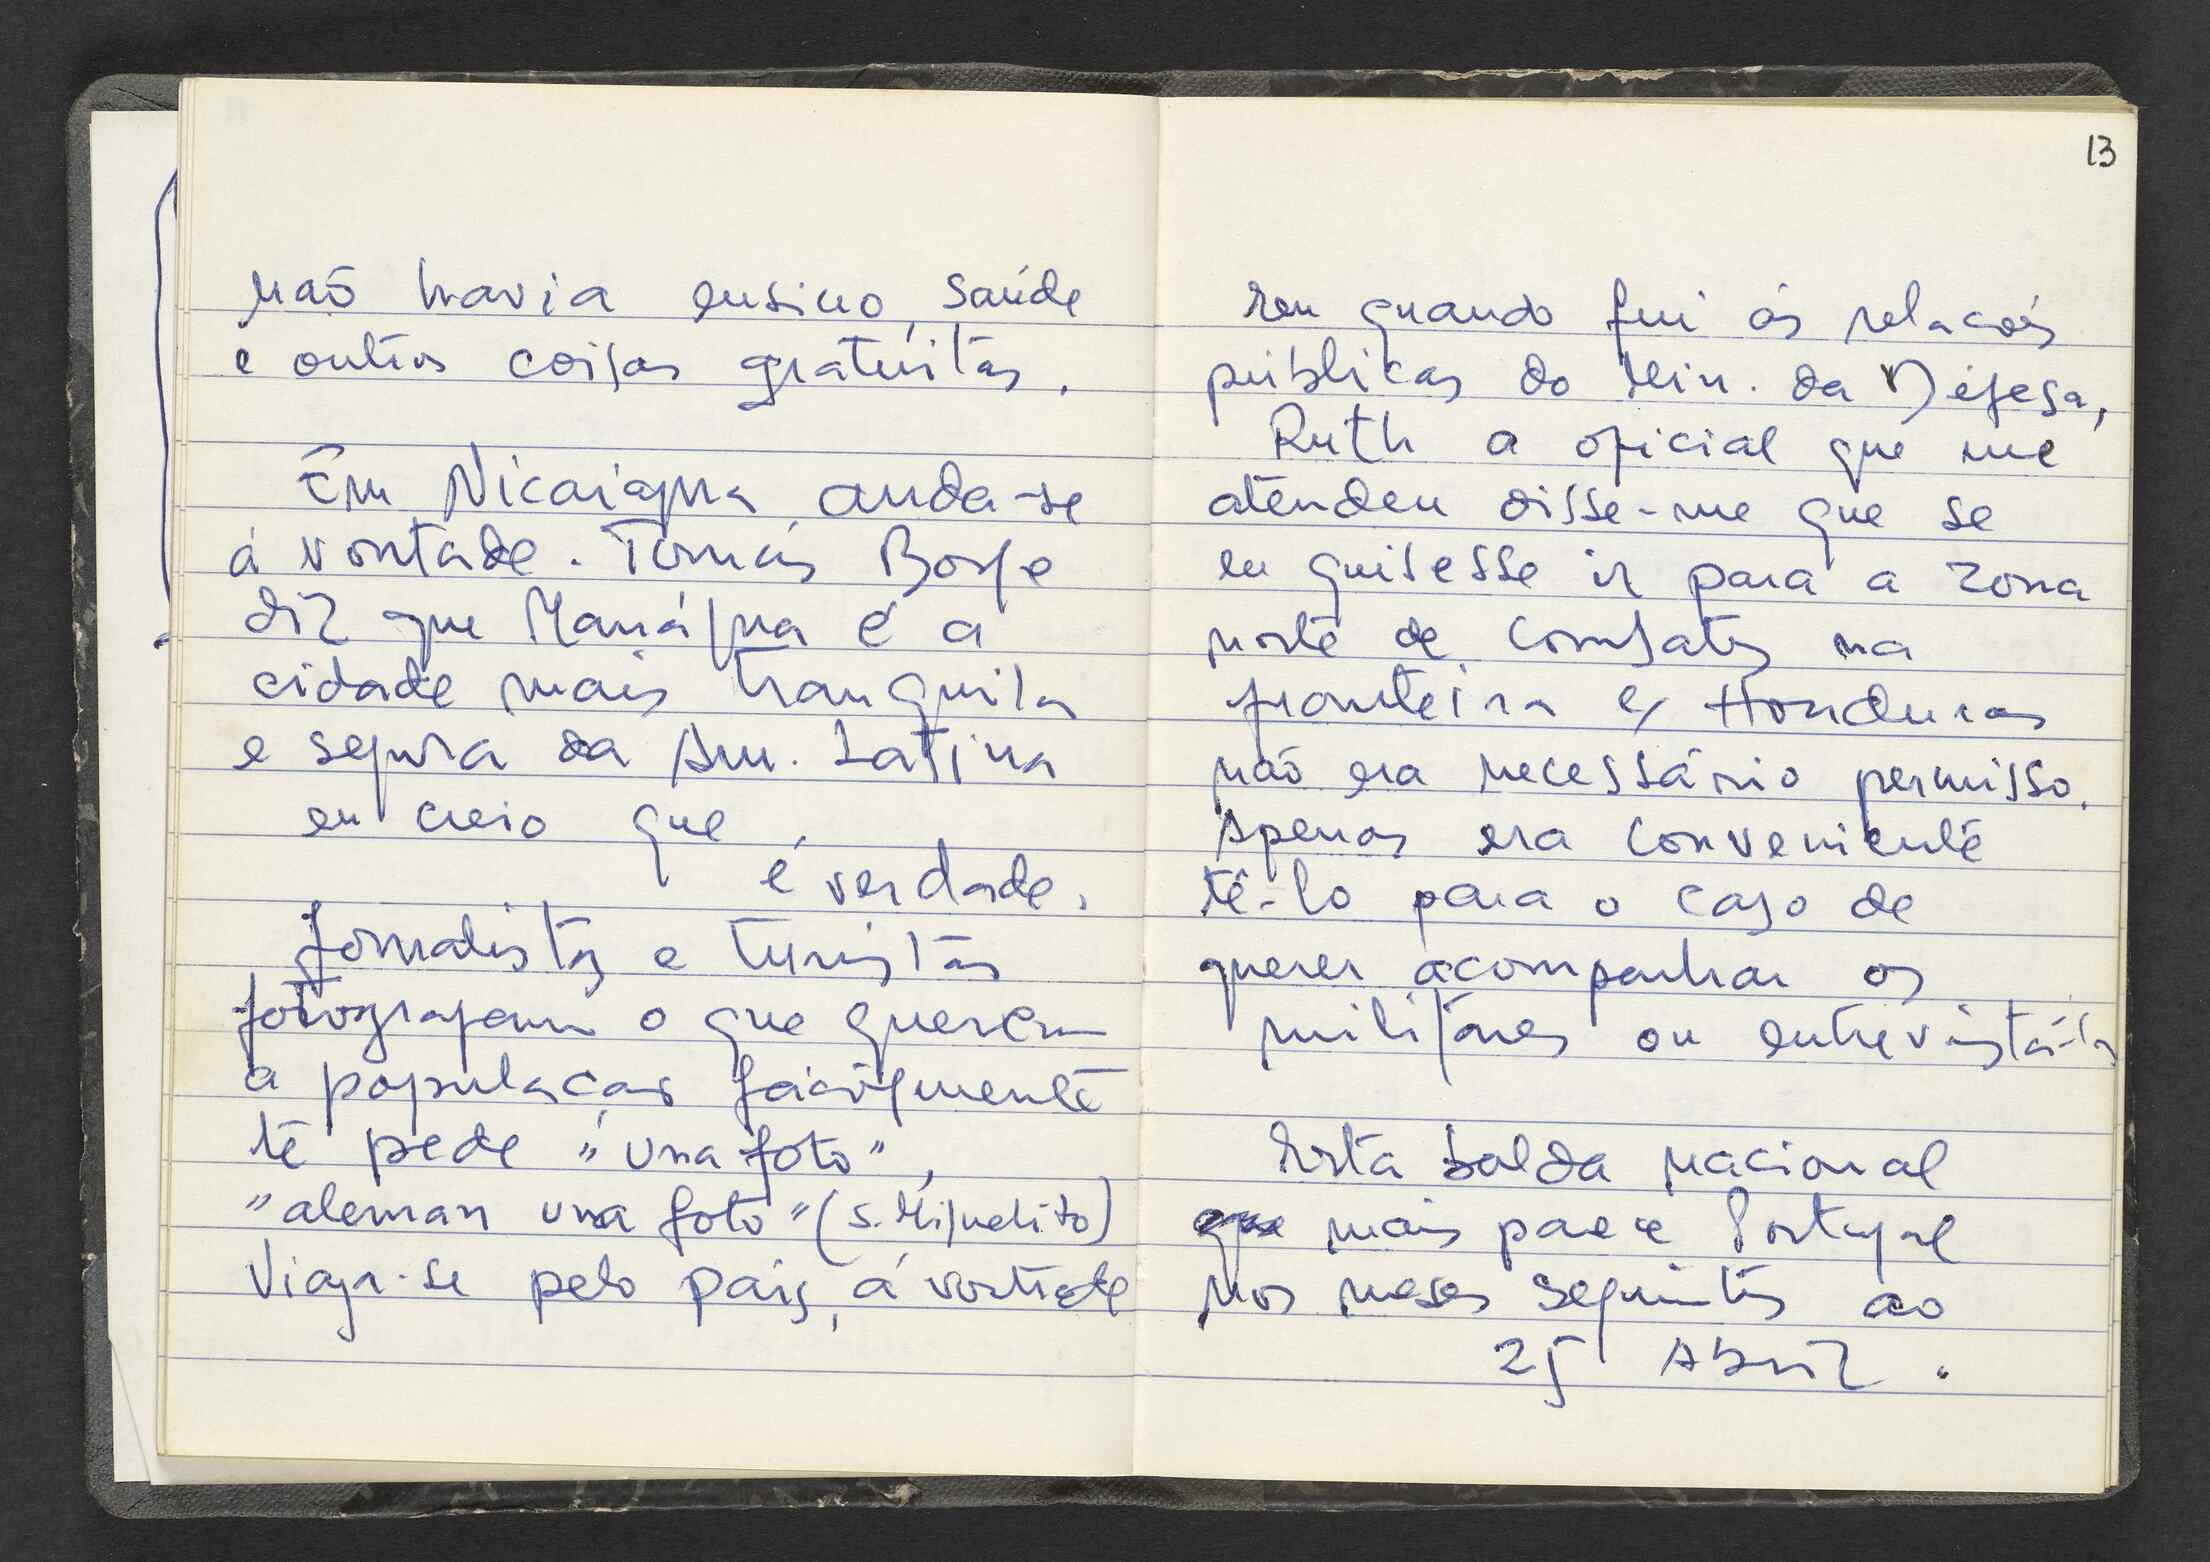 não havia ensino, saúde
e outras coisas gratuitas.
Em Nicarágua anda-se
à vontade. Tomás Borge
diz que Manágua é a
cidade mais tranquila
e segura da Am. Latina
eu creio que
é verdade.
Jornalistas e turistas
fotografam o que querem
a população facilmente
te pede "una foto",
"aleman una foto" (S. Miguelito)
Viaja-se pelo país, à vontade
13
quando fui ás relações
públicas do Min. da Defesa,
Ruth a oficial que me
atendeu disse-me que se
eu quisesse ir para a zona
norte de combates na
fronteira c/ Honduras
não era necessário permisso.
Apenas era conveniente
tê-lo para o caso de
querer acompanhar os
militares ou entrevistá-los
Esta balda nacional
que mais parece Portugal
nos meses seguintes ao
25 Abril.